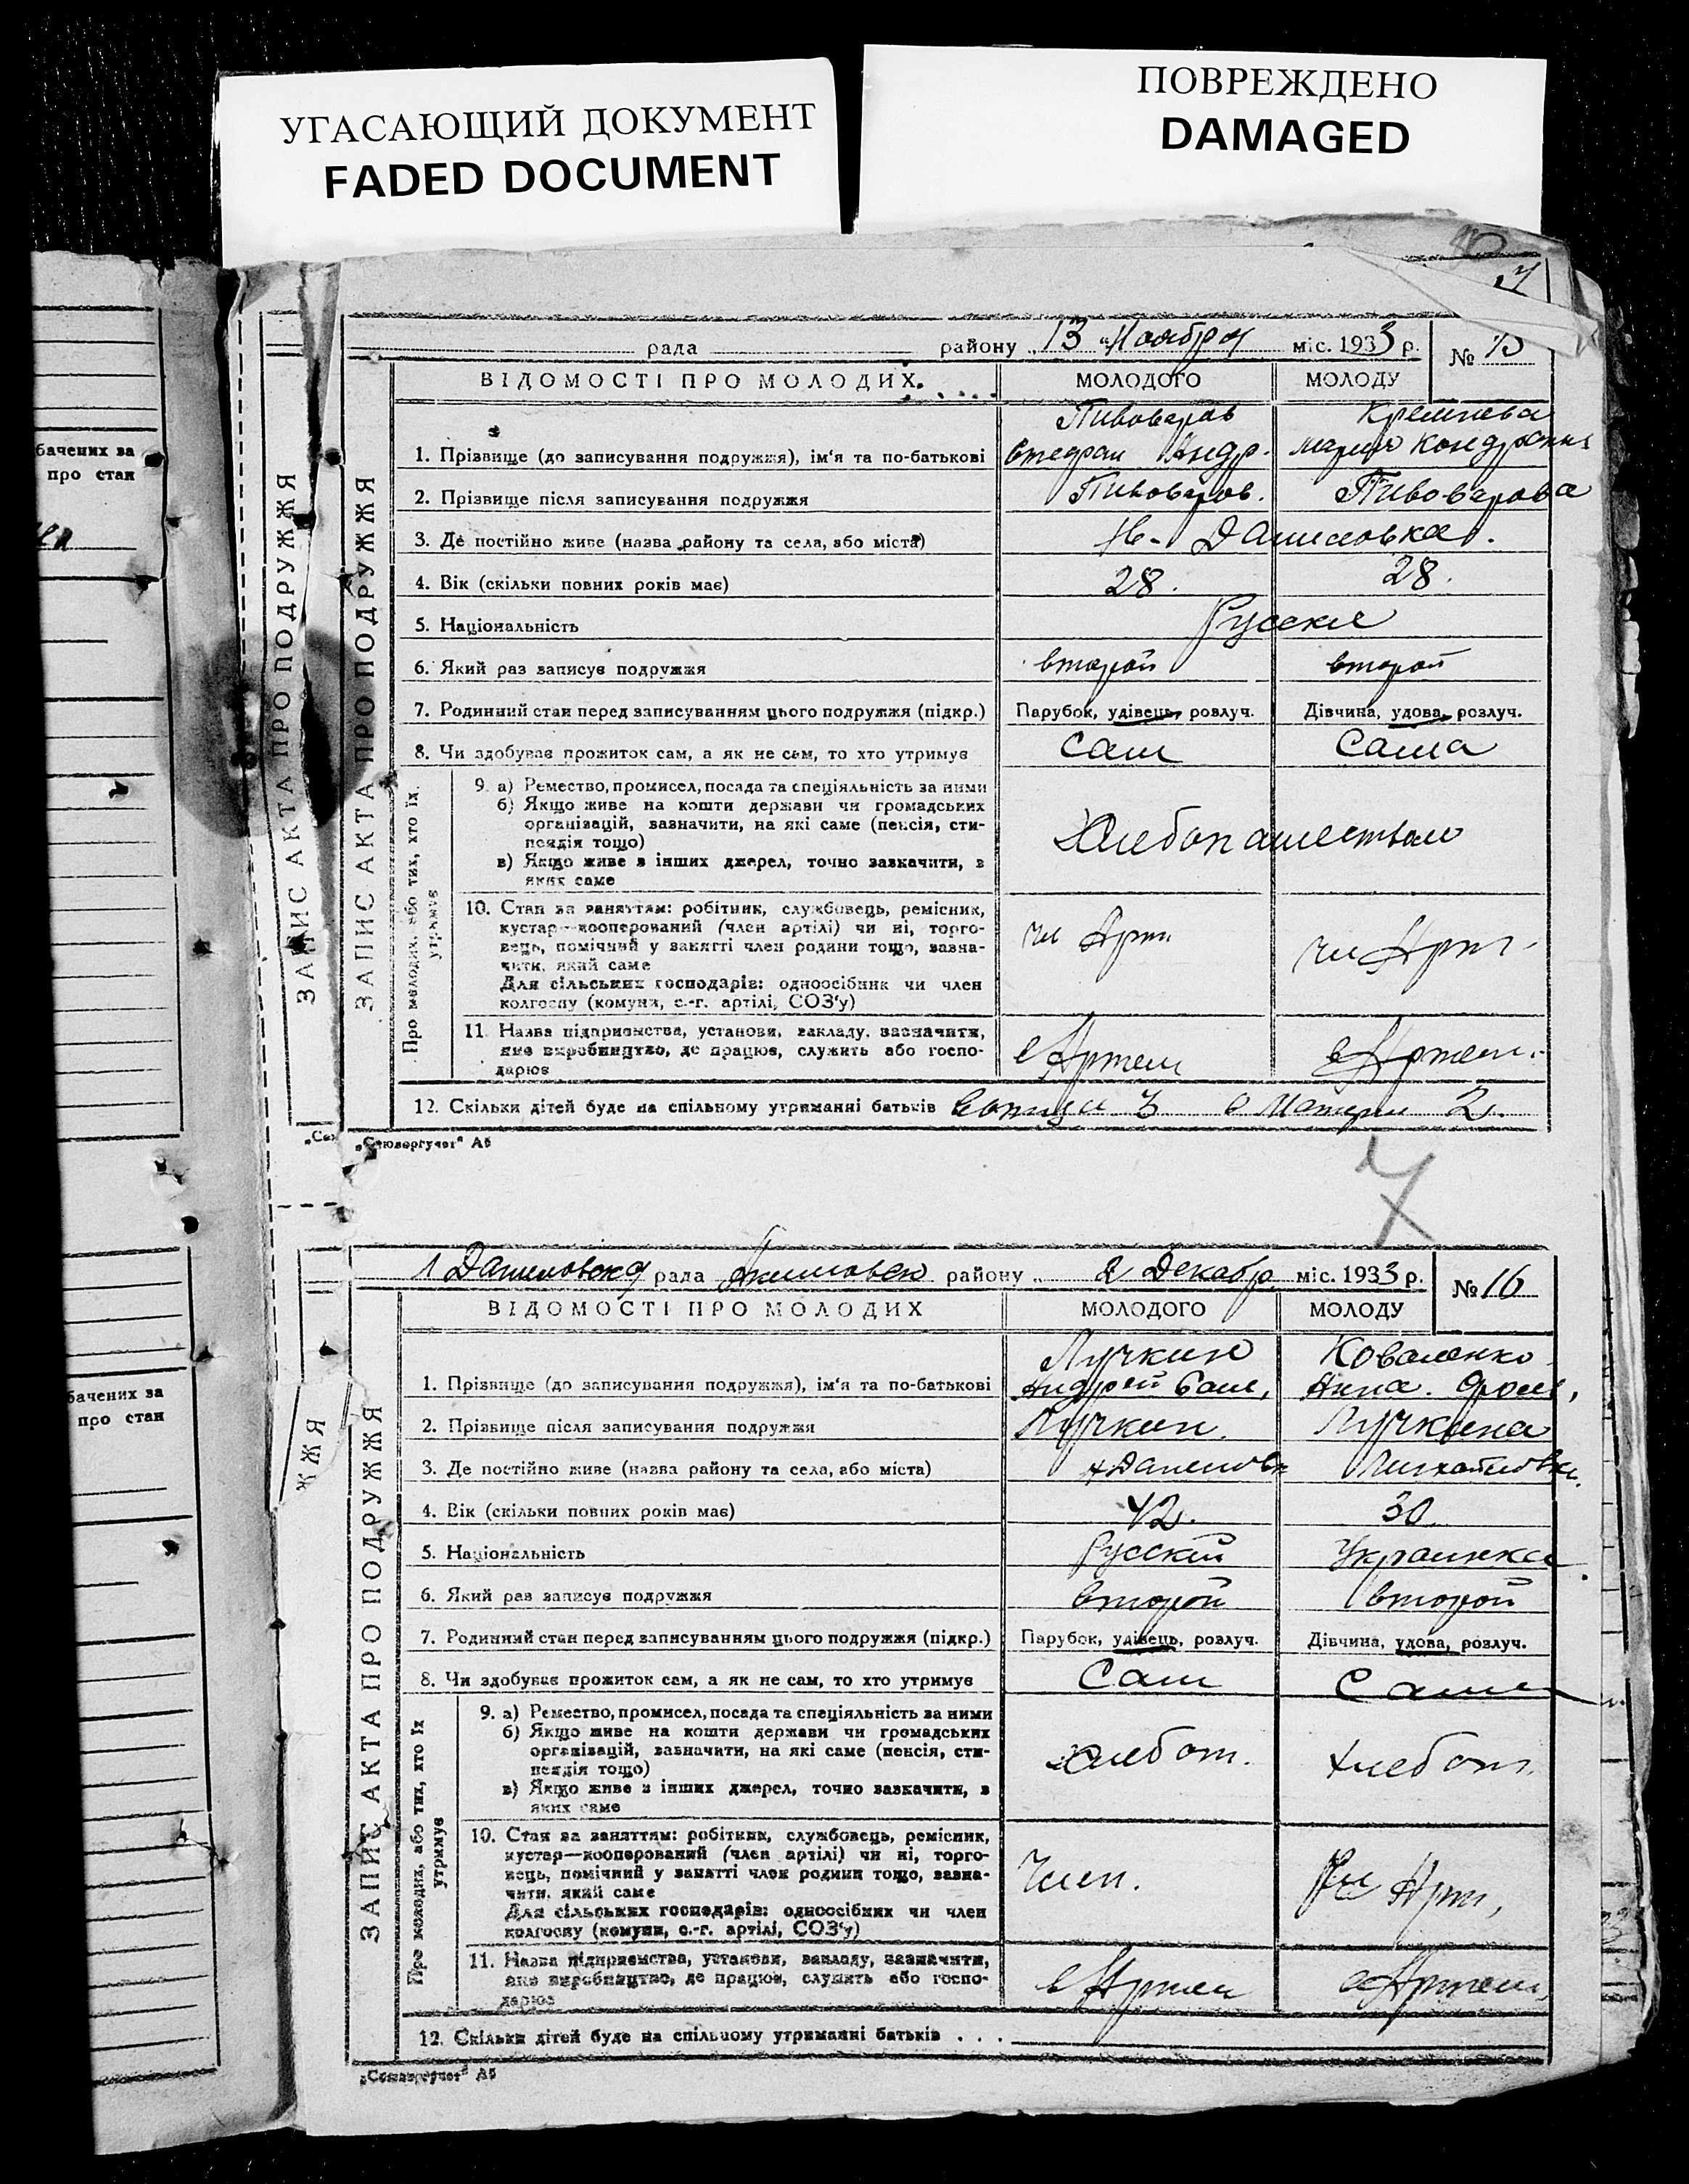 УГАСАЮЩИЙ ДОКУМЕНТ
FADED DOCUMENT
ПОВРЕЖДЕНО
DAMAGED
бачених за
про стан
ЗАПИС АКТА ПРО ПОДРУЖЖЯ
ЗАПИС АКТА ПРО ПОДРУЖЖЯ
рада району „13 „Ноября міс. 1933 р. № 15
ВІДОМОСТІ ПРО МОЛОДИХ. МОЛОДОГО МОЛОДУ
Пивоваров
1. Прізвище (до записування подружжя), ім'я та по-батькові Андр. Мария
2. Прізвище після записування подружжя Пивоваров. Пивоварова
3. Де постійно живе (назва району та села, або міста) Н- Даниловка.
4. Вік (скільки повних років має) 28. 28.
5. Національність Русские
6. Який раз записує подружжя второй второй
7. Родинний стан перед записуванням цього подружжя (підкр.) Парубок, удівець, розлуч. Дівчина, удова, розлуч.
8. Чи здобуває прожиток сам, а як не сам, то хто утримує Сам Сама
Про молодих, або тих, хто їх утримує
9. а) Ремество, промисел, посада та спеціяльність за ними
б) Якщо живе на кошти держави чи громадських
організацій, зазначити, на які саме (пенсія, сти-
пендія тощо)
в) Якщо живе з інших джерел, точно зазначити, з
яких саме
Хлебопашеством
10. Стан за заняттям: робітник, службовець, ремісник,
кустар—кооперований (член артілі) чи ні, торго-
вець, помічний у занятті член родини тощо, зазна-
чити, який саме
Для сільських господарів: одноосібник чи член
колгоспу (комуни, с.-г. артілі, СОЗ'у)
чл Арт чл Арт.
11. Назва підприємства, установи, закладу, зазначити,
яке виробництво, де працює, служить або госпо-
дарює
в Артели в Артели.
12. Скільки дітей буде на спільному утриманні батьків в отца 3 в Матери 2.
„Союзоргучет" А5
7
1 Даниловск рада Акимовск району „ 2 Декабр міс. 1933 р. № 16
ВІДОМОСТІ ПРО МОЛОДИХ МОЛОДОГО МОЛОДУ
Лучкин Коваленко
1. Прізвище (до записування подружжя), ім'я та по-батькові Андрей Анна.
2. Прізвище після записування подружжя Лучкин. Лучкина
3. Де постійно живе (назва району та села, або міста) Н Данилов Михайловк.
4. Вік (скільки повних років має) 42. 30
5. Національність Русский Украинка
6. Який раз записує подружжя второй второй
7. Родинний стан перед записуванням цього подружжя (підкр.) Парубок, удівець, розлуч. Дівчина, удова, розлуч.
8. Чи здобуває прожиток сам, а як не сам, то хто утримує Сам Сама
Про молодих, або тих, хто їх утримує
9. а) Ремество, промисел, посада та спеціяльність за ними
б) Якщо живе на кошти держави чи громадських
організацій, зазначити, на які саме (пенсія, сти-
пендія тощо)
в) Якщо живе з інших джерел, точно зазначити, з
яких саме
Хлебоп. Хлебоп.
10. Стан за заняттям: робітник, службовець, ремісник,
кустар—кооперований (член артілі) чи ні, торго-
вець, помічний у занятті член родини тощо, зазна-
чити, який саме
Для сільських господарів: одноосібник чи член
колгоспу (комуни, с.-г. артілі, СОЗ'у)
Член. Чл Арт.
11. Назва підприємства, установи, закладу, зазначити,
яке виробництво, де працює, служить або госпо-
дарює
в Артели в Артели
12. Скільки дітей буде на спільному утриманні батьків . . .
„Союзоргучет" А5
бачених за
про стан
ЖЖЯ
ЗАПИС АКТА ПРО ПОДРУЖЖЯ